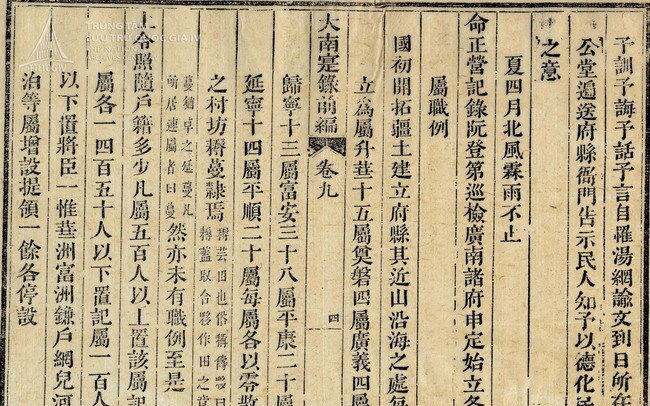 予訓予誨予話予言自罹湯網諭文到日所在
公堂遍送府縣衙門告示民人知予以德化
之意
夏四月北風霖雨不止
命正營記錄阮登第巡檢廣南諸府申定始立各
屬職例
國初開拓疆土建立府縣其近山沿海之處每
立為屬升華十五屬奠磐四屬廣義四屬
大南寔錄前編 卷九 四
歸寧十三屬富安三十八屬平康二十屬
延寧十四屬平順二十屬每屬各以零散
之村坊耨蔓隸焉
耨芸田也俗稱曰
耨蓋取合夥作田之意
蔓猶草之延蔓凡
所居連屬者曰蔓
然亦未有職例至是
上令照隨戶籍多少凡屬五百人以上置該屬記
屬各一四百五十人以下置記屬一百人
以下置將臣一惟華洲富洲鐮戶網兒河
泊等屬增設提領一餘各停設
TRUNG TÂM
LƯU TRỮ QUỐC GIA IV